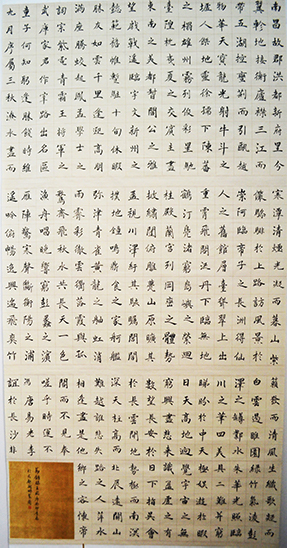 南昌故郡洪都新府星分
翼軫地接衡廬襟三江而
帶五湖控蠻荊而引甌越
物華天寶龍光射牛斗之
墟人傑地靈徐孺下陳蕃
之榻雄州霧列俊采星馳
臺隍枕夷夏之交賓主盡
東南之美都督閻公之雅
望棨戟遙臨宇文新州之
懿範襜帷暫駐十旬休暇
勝友如雲千里逢迎高朋
滿座騰蛟起鳳孟學士之
詞宗紫電青霜王將軍之
武庫家君作宰路出名區
童子何知躬逢勝餞時維
九月序屬三秋潦水盡而
寒潭清煙光凝而暮山紫
儼驂騑於上路訪風景於
崇阿臨帝子之長洲得仙
人之舊館層臺聳翠上出
重霄飛閣流丹下臨無地
鶴汀鳧渚窮島嶼之縈迴
桂殿蘭宮列岡巒之體勢
披繡闥俯雕甍山原曠其
盈視川澤紆其駭矚閭閻
撲地鐘鳴鼎食之家舸艦
彌津青雀黃龍之舳虹消
雨霽彩徹雲衢落霞與孤
鶩齊飛秋水共長天一色
漁舟唱晚響窮彭蠡之濱
雁陣驚寒聲斷衡陽之浦
遙吟俯暢逸興遄飛爽
籟發而清風生纖歌凝而
白雲遏睢園綠竹氣凌彭
澤之樽鄴水朱華光照臨
川之筆四美具二難并窮
睇眄於中天極娛遊於暇
日天高地迥覺宇宙之無
窮興盡悲來識盈虛之有
數望長安於日下指吳會
於雲間地勢極而南溟
深天柱高而北辰遠關山
難越誰悲失路之人萍水
相逢盡是他鄉之客懷帝
閽而不見奉
嗟乎時運不
馮唐易老李
誼於長沙非